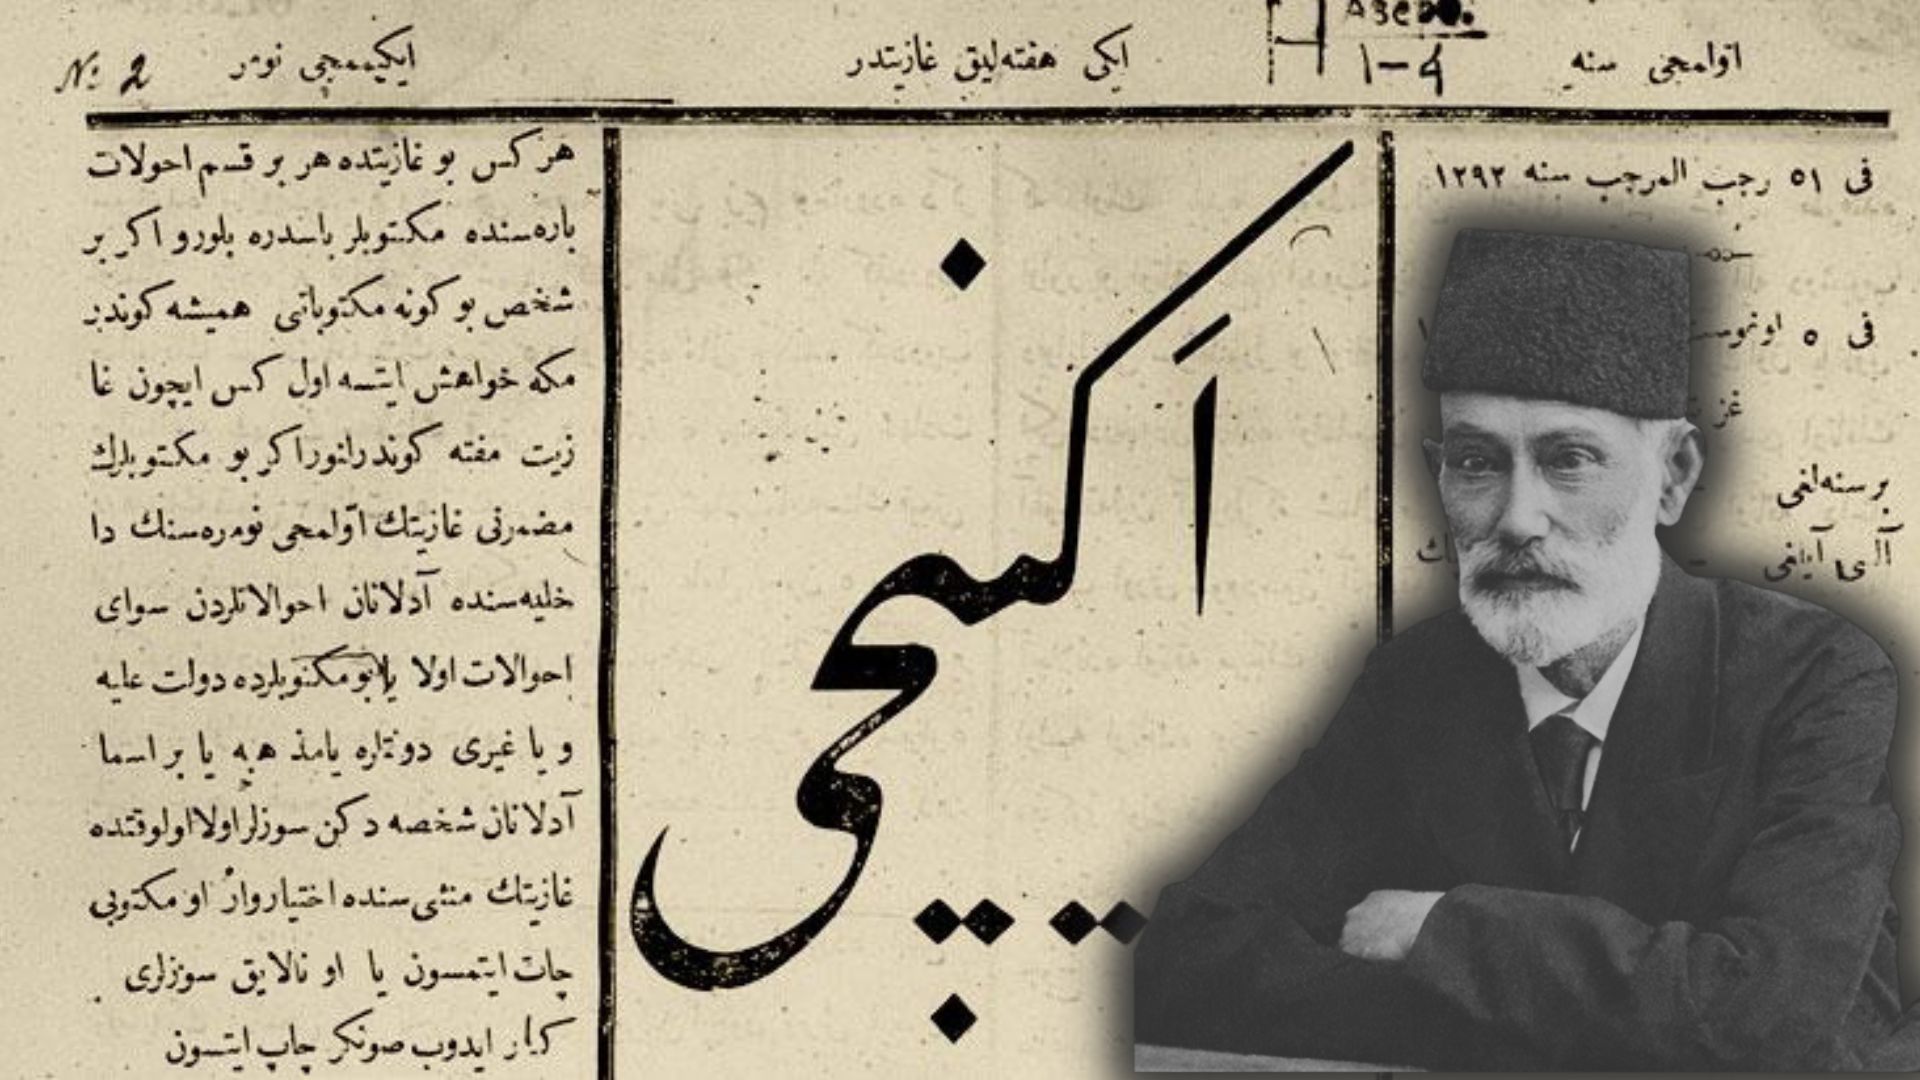 اوّلمجی سنه
Азерб.
1-4
ایکی هفته‌لیق غازیتدر
ایکیمجی نومر
№: 2
فی ١٥ رجب المرجب سنه ١٢٩٢
فی ٥
بر سنه‌لغی
آلتی آیلغی
اکینچی
هر کس بو غازیتده هر بر قسم احولات
باره‌سنده مکتوبلر باسدره بلور و اکر بر
شخص بو کونه مکتوباتی همیشه کوندر
مکه خواهش ایتسه اول کس ایچون غا
زیت مفته کوندرلنور اکر بو مکتوبلرك
مضمرنی غازیتك اوّلمجی نومره‌سنك دا
خلیه‌سنده آدلانان احوالاتلردن سوای
احوالات اولا یا بو مکتوبلرده دولت علیه
و یا غیری دولتلره یا مذهبه یا بر اسما
آدلانان شخصه دکن سوزلر اولا اولوقتده
غازیتك منشی‌سنده اختیار وار او مکتوبی
چاپ ایتمسون یا او نالایق سوزلری
کنار ایدوب صونکر چاپ ایتسون